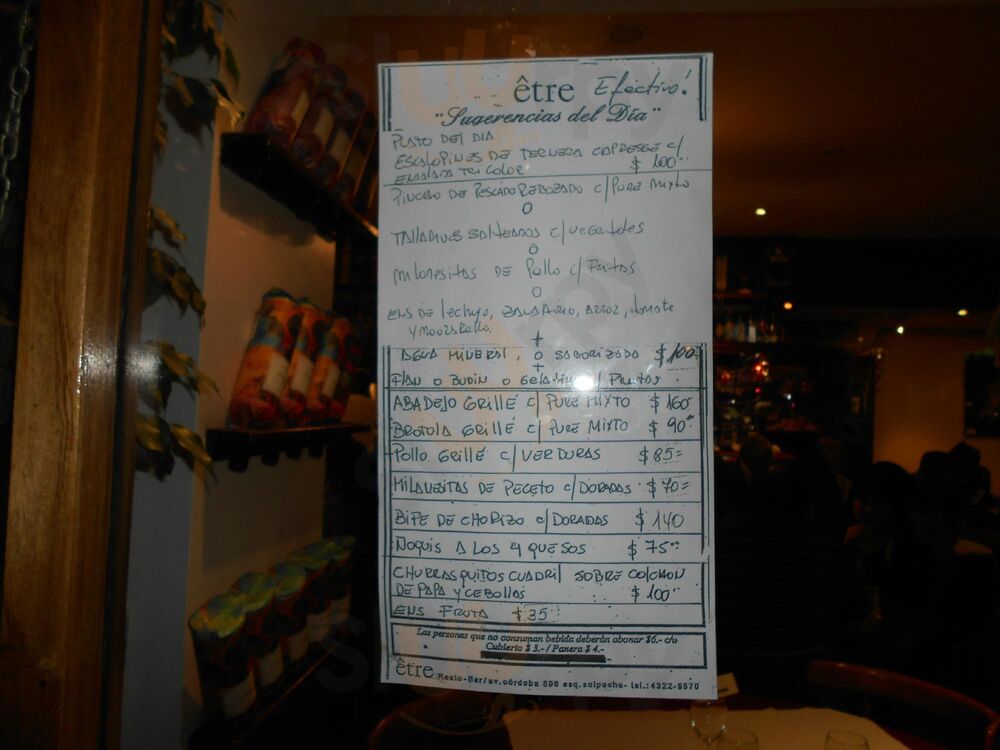 être Efectivo!
"Sugerencias del Día"
PLATO DEL DIA
ESCALOPINES DE TERNERA CAPRESSE c/
ENSALADA TRICOLOR $ 100--
DE PESCADO REBOZADO c/ PURE MIXTO
o
TALLARINES SALTEADOS c/ vegetales
o
MILANESITAS DE Pollo c/ Fritas
o
ENS DE lechuga, ZANAHORIO, ARROZ, tomate
y MOOZARELLO
+
AGUA MINERAL, o SABORIZADA $ 100--
+
FlAN o BUDIN o GelATINA c/ FRUTAS.
ABADEJO GRILLÉ c/ PURE MIXTO $ 160--
BROTOLA GRILLÉ c/ PURE MIXTO $ 90--
Pollo GRILLÉ c/ VERDURAS $ 85=
MILANESITAS DE PECETO c/ DORADAS $ 70=
BIFE DE CHORIZO c/ DORADAS $ 140
ÑOQUIS A LOS 4 QUESOS $ 75--
CHURRASQUITOS CUADRIL SOBRE COLCHON
DE PAPA Y CEBOLLAS $ 100--
ENS FRUTA $ 35
Las personas que no consuman bebida deberán abonar $6.- c/u
Cubierto $ 3.- / Panera $ 4.-
être Resto-Bar/av. córdoba 896 esq. suipacha- tel.:4322-9570